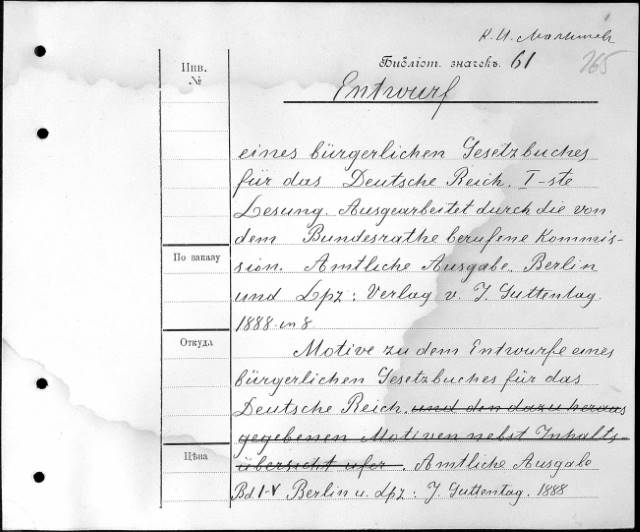 К. И. Малышев
Библіот. значекъ. 61
265
Инв.
№
Entwurf
eines bürgerlichen Gesetzbuches
für das Deutsche Reich. I-ste
Lesung. Ausgearbeitet durch die von
dem Bundesrathe berufene Kommis-
По заказу
sion. Amtliche Ausgabe. Berlin
und Lpz: Verlag v. J. Guttentag.
1888. in 8.
Откуда
Motive zu dem Entwurfe eines
bürgerlichen Gesetzbuches für das
Deutsche Reich. und den dazu heraus
gegebenen Motiven nebst Inhalts-
Цѣна
übersicht ufer. Amtliche Ausgabe
Bd I-V Berlin u. Lpz: J. Guttentag. 1888